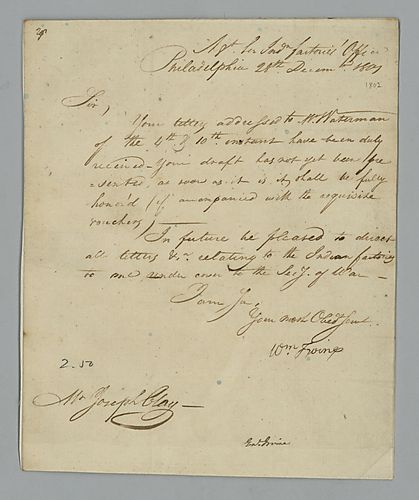 Agt for Indn factories' Office
Philadelphia 28th Decemr. 1802
1802
Sir,
Your letters addressed to Mr. Waterman
of the 4th & 10th instant have been duly
received — Your draft has not yet been pre
=sented, as soon as it is, it shall be fully
honor'd (if accompanied with the requisite
vouchers) —
In future be pleased to direct
all letters &c. relating to the Indian factories
to me under cover to the Secy. of War —
I am Sir,
Your most Obedt. Servt.
Wm. Irvine
2.50
Mr Joseph Clay —
Irvine